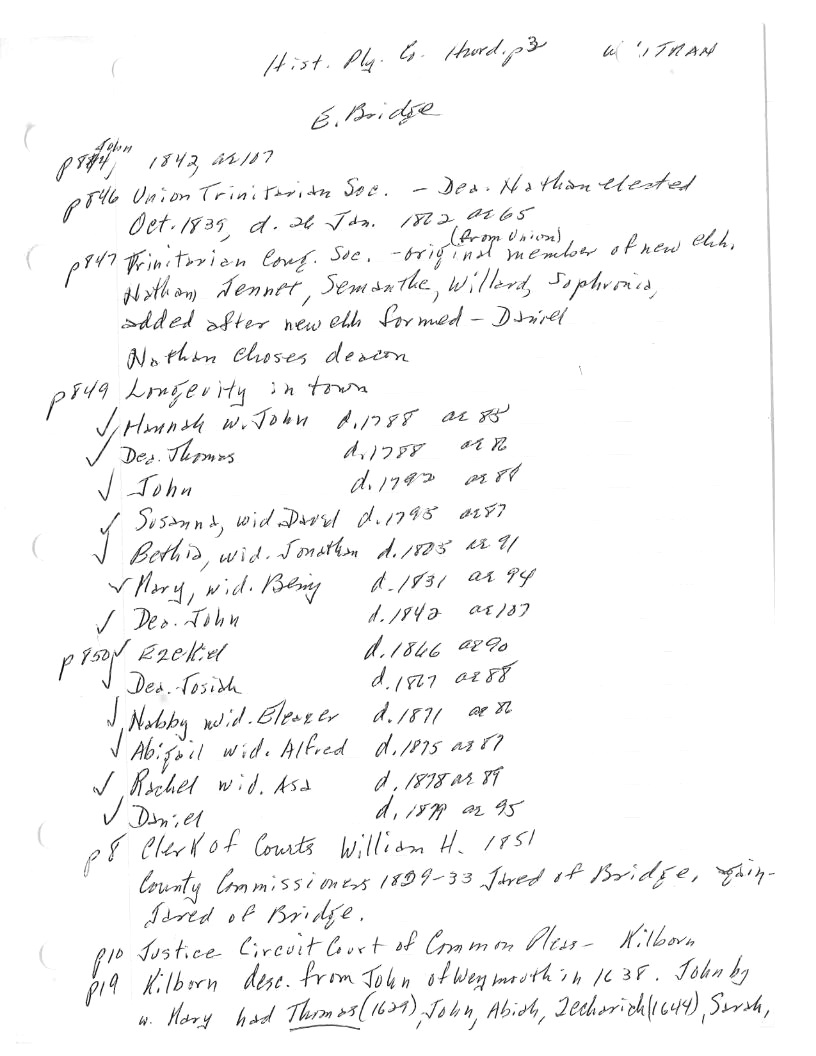 Hist. Ply. Co. Hurd. p3 WHITMAN
E. Bridge
p844, John 1842, ae 107
p846 Union Trinitarian Soc. - Dea. Nathan elected
Oct. 1839, d. 26 Jan. 1862 ae 65
(from Union)
p847 Trinitarian Cong. Soc. - original member of new chh.
Nathan Jennet, Semanthe, Willard, Sophronia,
added after new chh formed - Daniel
Nathan choses deacon
p849 Longevity in town
✓ Hannah w. John d. 1788 ae 85
✓ Dea. Thomas d. 1788 ae 86
✓ John d. 1792 ae 88
✓ Susanna, wid David d. 1795 ae 87
✓ Bethia, wid. Jonathan d. 1805 ae 91
✓ Mary, wid. Benj d. 1831 ae 94
✓ Dea. John d. 1842 ae 107
p850 ✓ Ezekiel d. 1866 ae 90
✓ Dea. Josiah d. 1867 ae 88
✓ Nabby wid. Eleazer d. 1871 ae 86
✓ Abigail wid. Alfred d. 1875 ae 87
✓ Rachel wid. Asa d. 1878 ae 89
✓ Daniel d. ae 95
p8 Clerk of Courts William H. 1851
County Commissioners Jared of Bridge,
Jared of Bridge.
p10 Justice Circuit Court of Common Pleas - Kilborn
p19 Kilborn desc. from John of Weymouth in 1638. John by
w. Mary had Thomas (1629), John, Abiah, Zecharich (1644), Sarah,